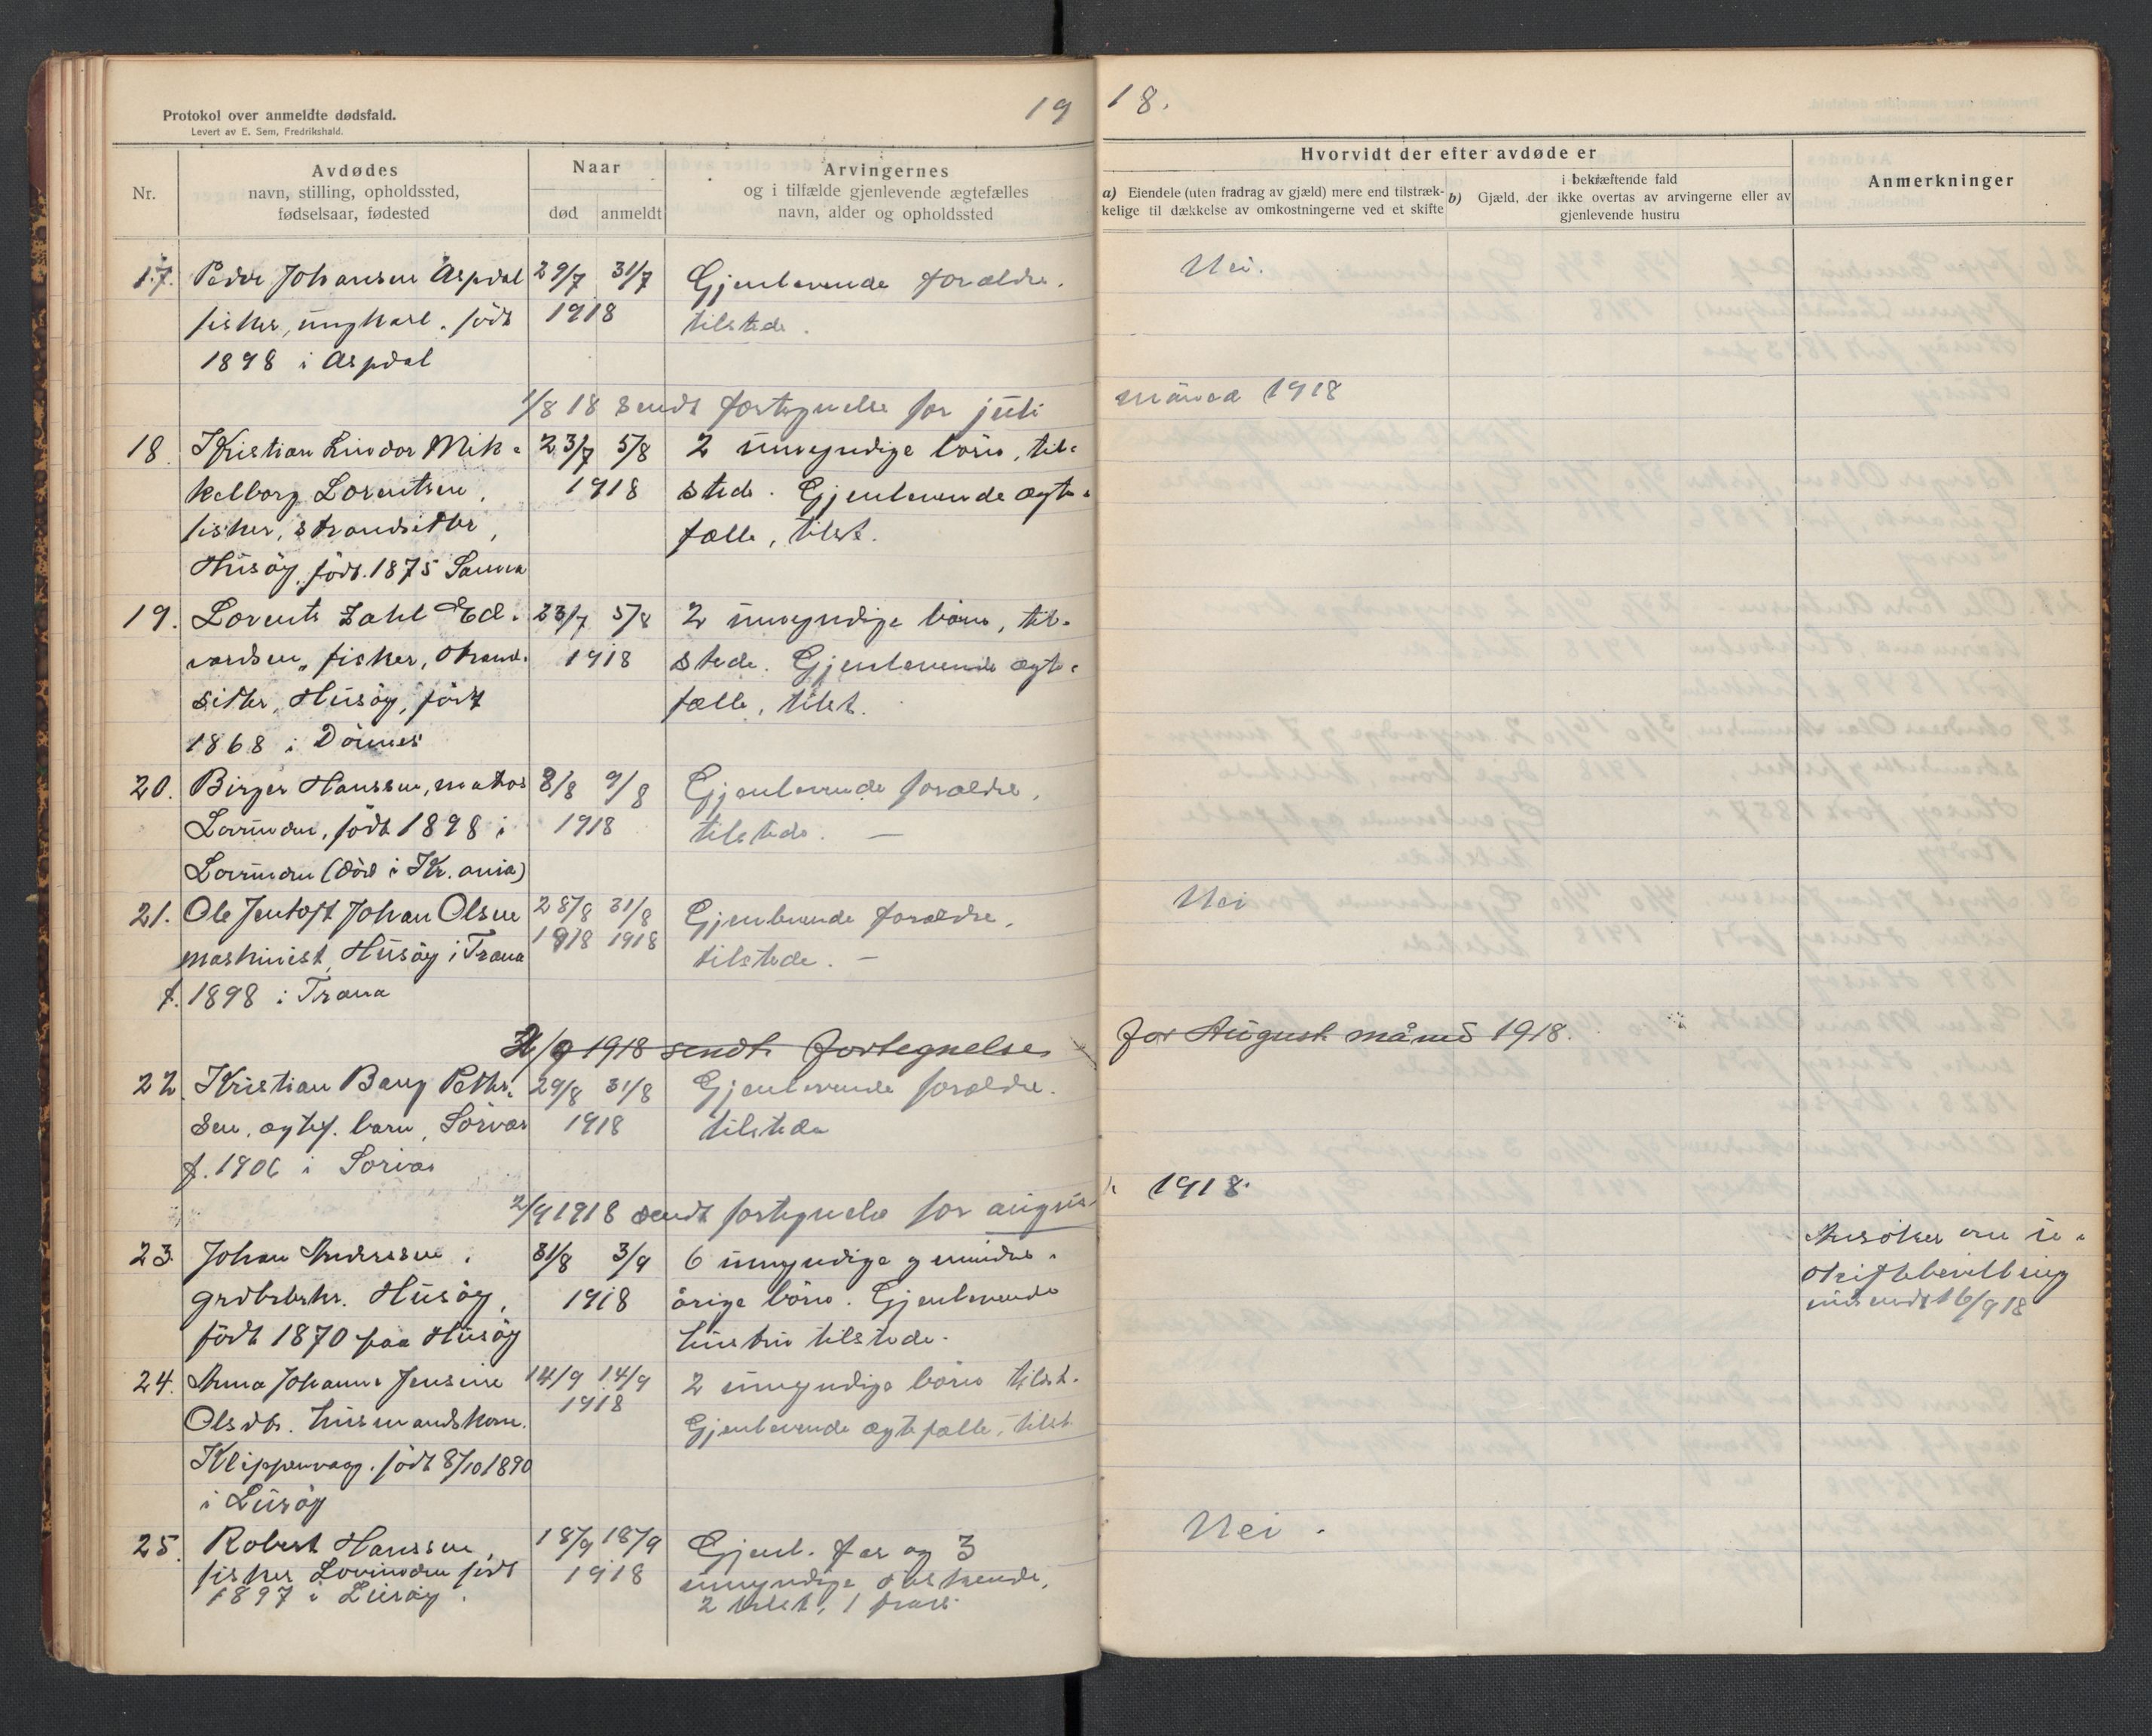 Protokol over anmeldte dødsfald.
Levert av E. Sem, Fredrikshald.
19
Nr.
Avdødes
navn, stilling, opholdssted,
fødselsaar, fødested
Naar
død
anmeldt
Arvingernes
og i tilfælde gjenlevende ægtefælles
navn, alder og opholdssted
17. Peder Johansen Aspdal 29/7 31/7 Gjenlevende forældre.
fisker, ungkarl. født 1918 tilstede.
1898 i Aspdal
1/8 18 sendt fortegnelse for juli
18. Kristian Lindor Mik- 23/7 5/8 2 umyndige börn, til-
kelborg Lorentsen, 1918 stede. Gjenlevende ægte-
fisker, strandsitter, fælle, tilst.
Husöy, født. 1875 Sanna
19. Lorents Zahl Ed- 23/7 5/8 2 umyndige börn, til-
vardsen, fisker, strand- 1918 stede. Gjenlevende ægte-
sitter, Husöy, född fælle, tilst.
1868 i Dönnes
20. Birger Hanssen, matros 8/8 9/8 Gjenlevende forældre,
Lovunden, född 1898 i 1918 tilstede. —
Lovunden (död i Kr.ania)
21. Ole Jentoft Johan Olsen 28/8 31/8 Gjenlevende forældre,
maskinist, Husöy i Træna 1918 1918 tilstede. —
f. 1898 i Træna
2/9 1918 sendt fortegnelse
22. Kristian Bang Peter- 29/8 31/8 Gjenlevende forældre.
sen, ægtef. barn, Sörvær 1918 tilstede
f. 1906 i Sörvær
2/9 1918 sendt fortegnelse for augus
23. Johan Andersen. 31/8 3/9 6 umyndige og mindre-
grdbrbskr. Husöy, 1918 årige börn. Gjenlevende
född 1870 paa Husöy hustru tilstede.
24. Anna Johanna Jensine 14/9 14/9 2 umyndige börn tilst.
Olsdtr. husmandskone. 1918 Gjenlevende ægtefælle, tilst.
Klippenvaag. född 8/10 1890
i Lurøy
25. Robert Hanssen, 18/9 18/9 Gjenl. far og 3
fisker Lovunden född 1918 umyndige söskende,
1897 i Lurøy. 2 tilst, 1 frav.
18.
Hvorvidt der efter avdøde er
a) Eiendele (uten fradrag av gjæld) mere end tilstræk-
kelige til dækkelse av omkostningerne ved et skifte
i bekræftende fald
b) Gjæld, der ikke overtas av arvingerne eller av
gjenlevende hustru
Anmerkninger
Nei.
måned 1918
Nei
for August måned 1918.
1918.
Ansöker om u-
skiftebevilling
indsendt 16/9 18
Nei.